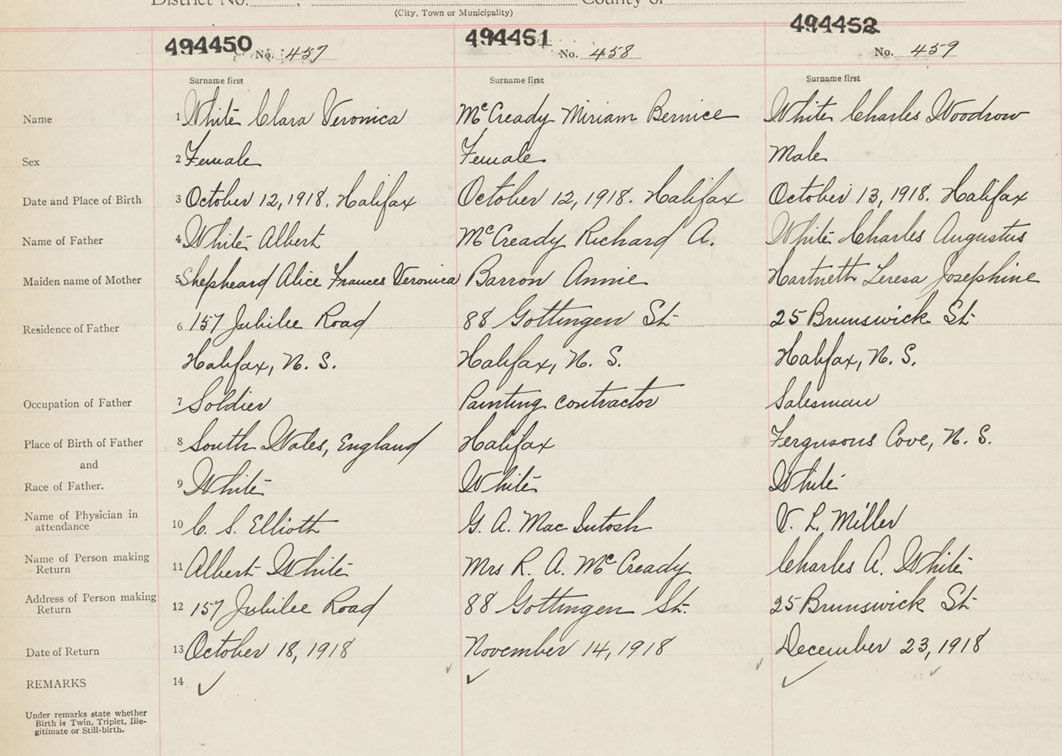 District No. County of
(City, Town or Municipality)
494450 No. 457 494451 No. 458 494452 No. 459
Surname first Surname first Surname first
Name 1 White Clara Veronica McCready Miriam Bernice White Charles Woodrow
Sex 2 Female Female Male
Date and Place of Birth 3 October 12, 1918. Halifax October 12, 1918. Halifax October 13, 1918. Halifax
Name of Father 4 White Albert McCready Richard A. White Charles Augustus
Maiden name of Mother 5 Shepheard Alice Frances Veronica Barron Annie Hartnett Teresa Josephine
Residence of Father 6 157 Jubilee Road 88 Gottingen St. 25 Brunswick St.
Halifax, N. S. Halifax, N. S. Halifax, N. S.
Occupation of Father 7 Soldier Painting contractor Salesman
Place of Birth of Father 8 South Wales, England Halifax Fergusons Cove, N. S.
and
Race of Father. 9 White White White
Name of Physician in
attendance 10 C. S. Elliott G. A. MacIntosh V. L. Miller
Name of Person making
Return 11 Albert White Mrs R. A. McCready Charles A. White
Address of Person making
Return 12 157 Jubilee Road 88 Gottingen St. 25 Brunswick St.
Date of Return 13 October 18, 1918 November 14, 1918 December 23, 1918
REMARKS 14 ✓ ✓ ✓
Under remarks state whether
Birth is Twin, Triplet, Ille-
gitimate or Still-birth.